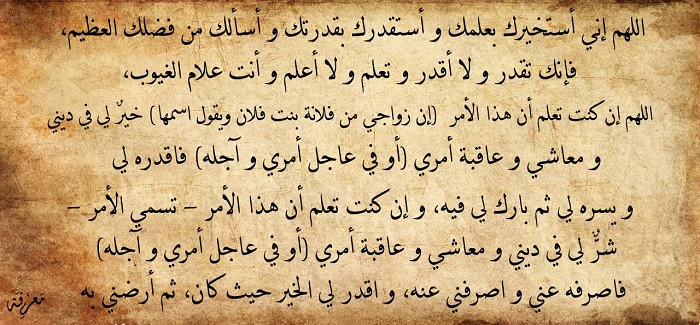 اللهم إني أستخيرك بعلمك و أستقدرك بقدرتك و أسألك من فضلك العظيم،
فإنك تقدر و لا أقدر و تعلم و لا أعلم و أنت علام الغيوب،
اللهم إن كنت تعلم أن هذا الأمر (إن زواجي من فلانة بنت فلان ويقول اسمها) خيرٌ لي في ديني
و معاشي و عاقبة أمري (أو في عاجل أمري و آجله) فاقدره لي
و يسره لي ثم بارك لي فيه، و إن كنت تعلم أن هذا الأمر – تسمي الأمر –
شرٌّ لي في ديني و معاشي و عاقبة أمري (أو في عاجل أمري و آجله)
فاصرفه عني و اصرفني عنه، و اقدر لي الخير حيث كان، ثم أرضني به
معرفة